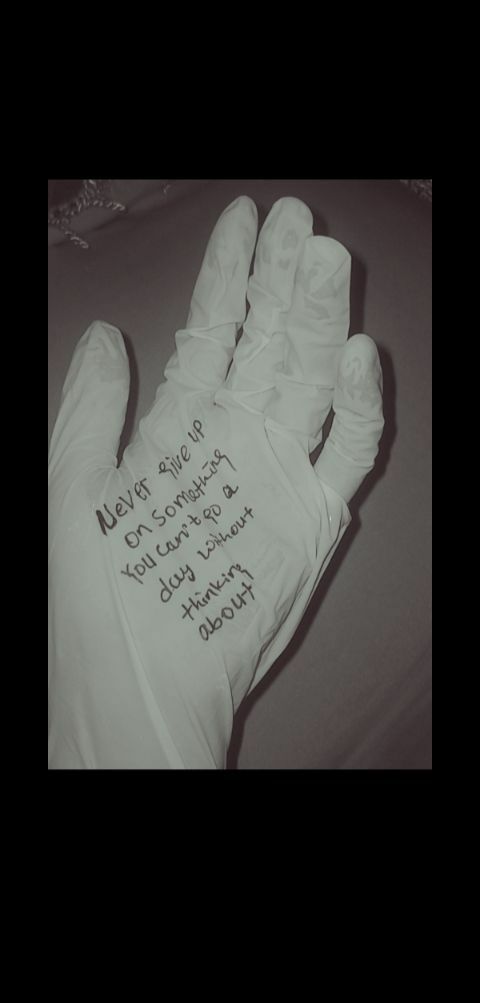 Never give up
on something
you can't go a
day without
thinking
about!